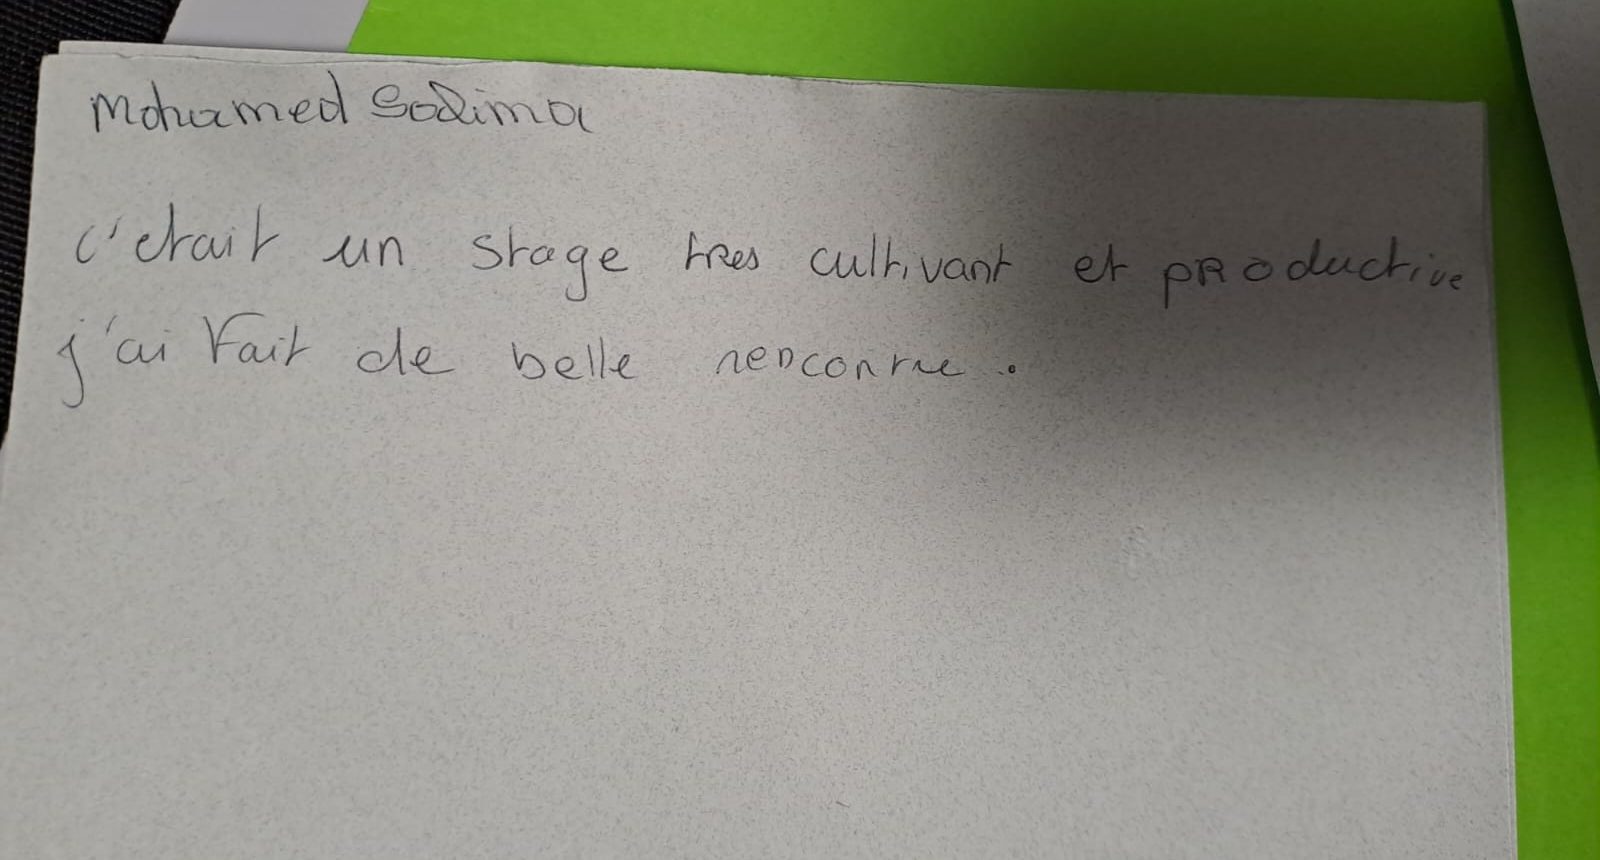 Mohamed Solima
c'etait un stage tres cultivant et productive
j'ai fait de belle rencontre.